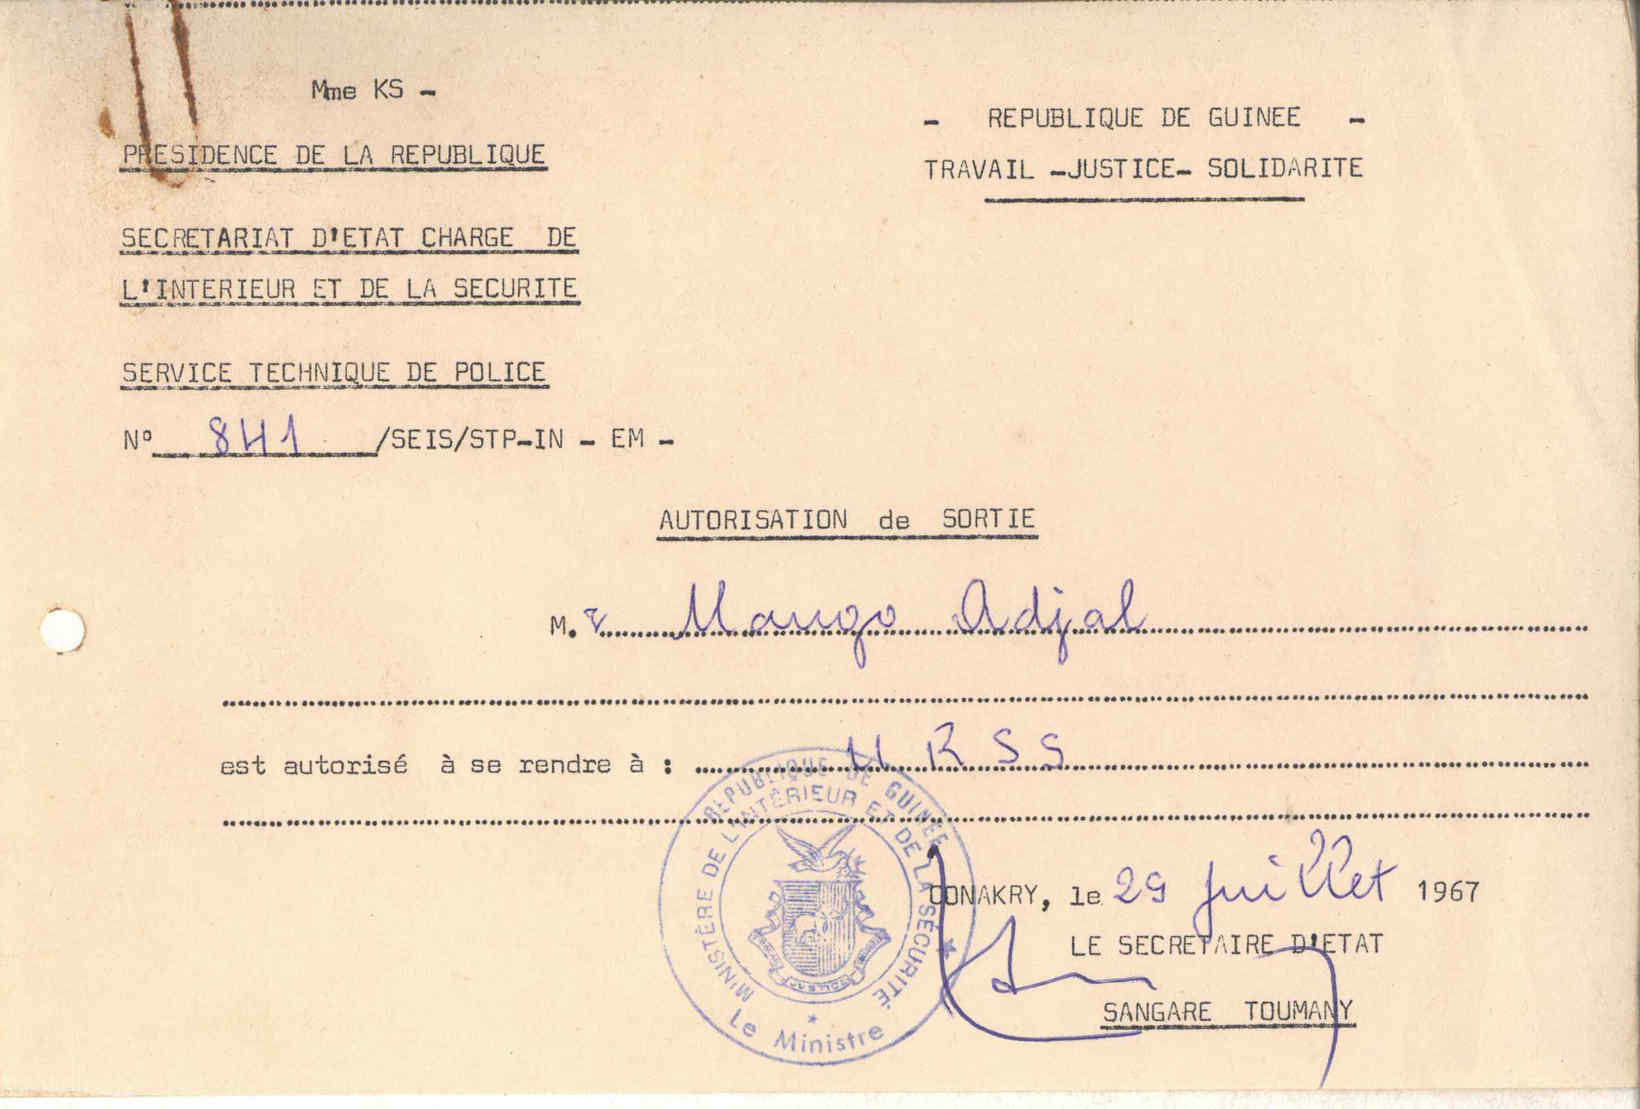 Mme KS -
PRESIDENCE DE LA REPUBLIQUE
SECRETARIAT D'ETAT CHARGE DE
L'INTERIEUR ET DE LA SECURITE
SERVICE TECHNIQUE DE POLICE
N° 841 /SEIS/STP-IN - EM -
- REPUBLIQUE DE GUINEE -
TRAVAIL -JUSTICE- SOLIDARITE
AUTORISATION de SORTIE
M. r Mango Adjal
est autorisé à se rendre à : URSS
CONAKRY, le 29 juillet 1967
LE SECRETAIRE D'ETAT
SANGARE TOUMANY
REPUBLIQUE DE GUINEE
MINISTÈRE DE L'INTÉRIEUR ET DE LA SÉCURITÉ
Le Ministre